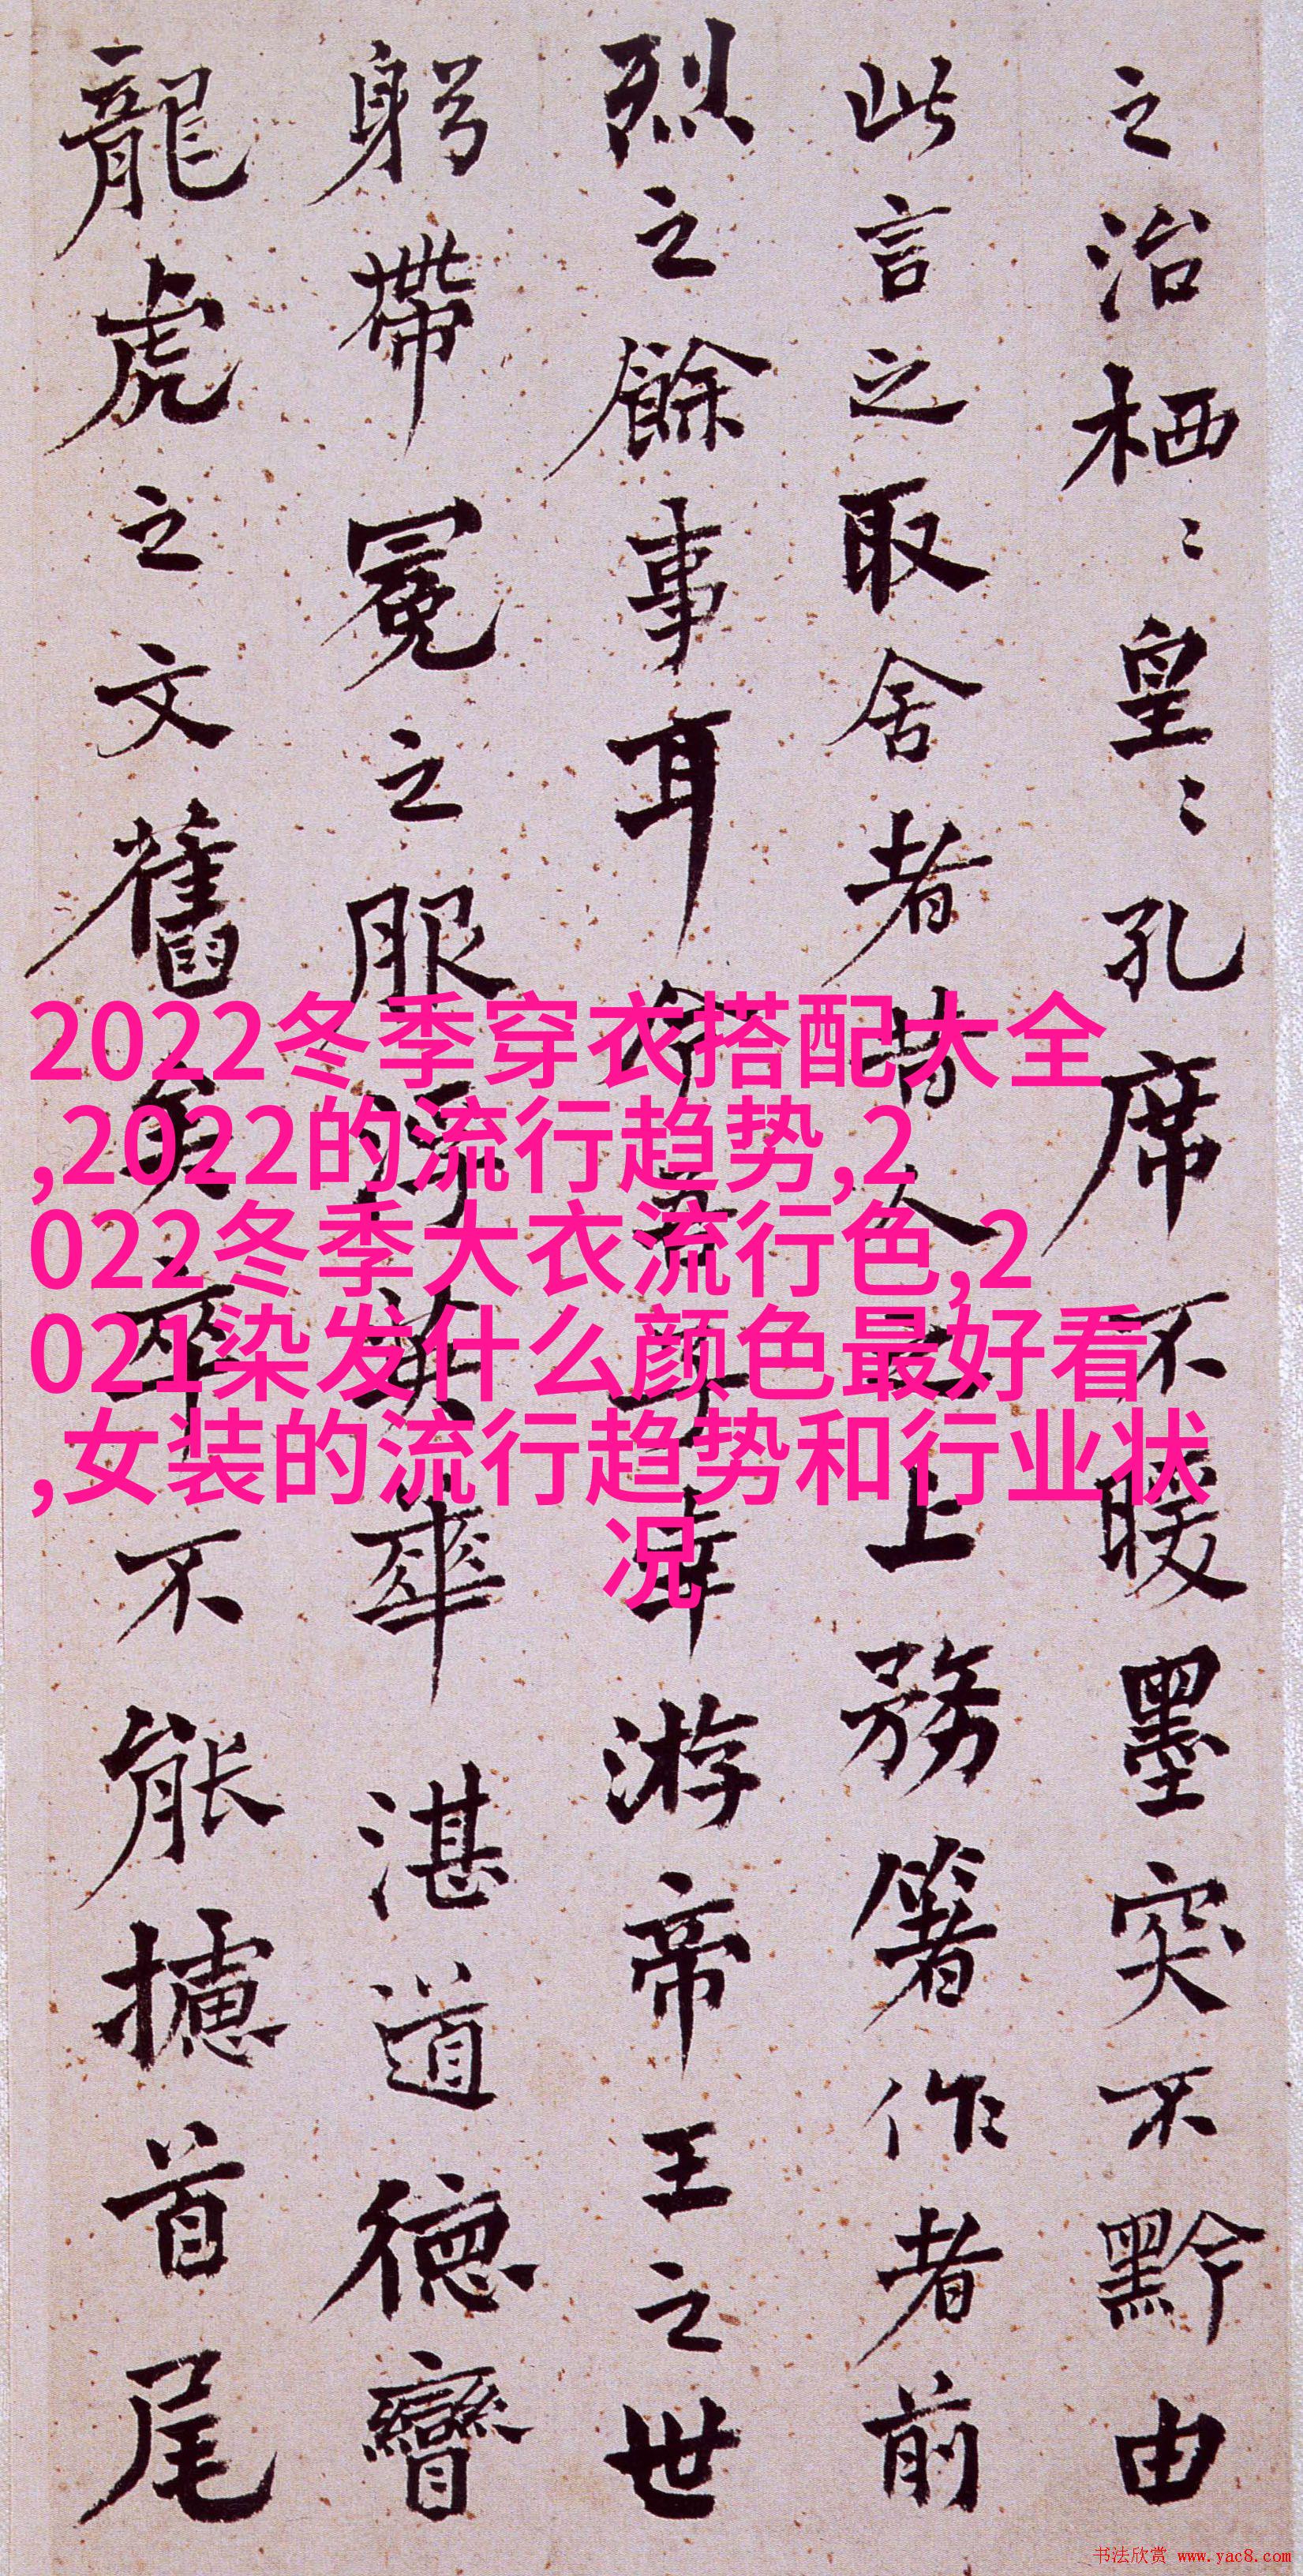 之治栖〻皇〻孔席不暖墨突不黔由
此言之取舍者昔人之上務箸作者前
烈之餘事耳今吾子幸游帝王之世
躬帶冕之服浮英華湛道德矕
龍虎之文舊矣卒不能攄首尾
2022冬季穿衣搭配大全
,2022的流行趋势,2
022冬季大衣流行色,2
021染发什么颜色最好看
,女装的流行趋势和行业状
况
书法欣赏 www.yac8.com